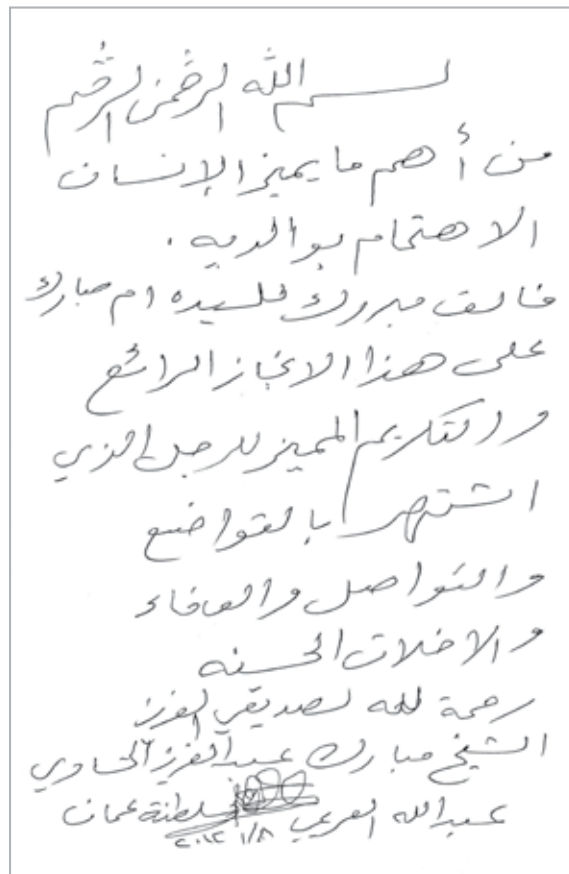 بسم الله الرحمن الرحيم
من أهم ما يميز الإنسان
الاهتمام بوالديه .
فألف مبروك للسيده ام مبارك
على هذا الانجاز الرائع
والتكريم المميز للرجل الذي
اشتهر بالتواضع
والتواصل والوفاء
والاخلاق الحسنه
رحمة الله لصديقي العزيز
الشيخ مبارك عبدالعزيز الحساوي
عبدالله سلطنة عمان
٢٠١٢ ١/٨